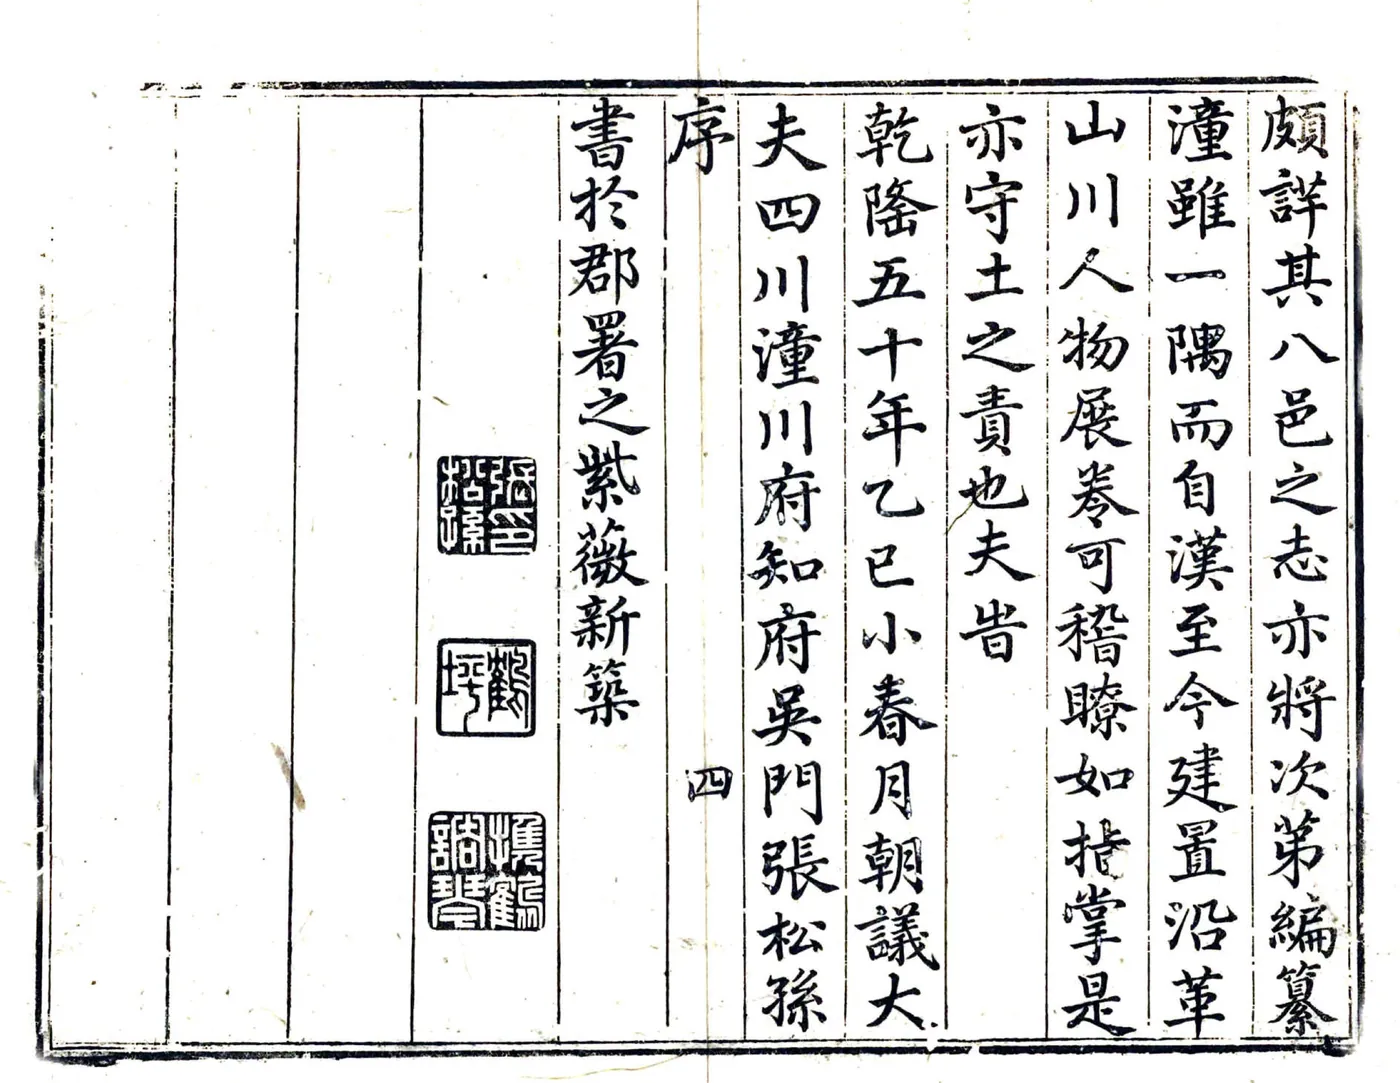 頗詳其八邑之志亦將次第編纂
潼雖一隅而自漢至今建置沿革
山川人物展卷可稽瞭如指掌是
亦守土之責也夫旹
乾隆五十年乙巳小春月朝議大
夫四川潼川府知府吳門張松孫
序
四
書於郡署之紫薇新築
張松孫印
鶴坪
携鶴